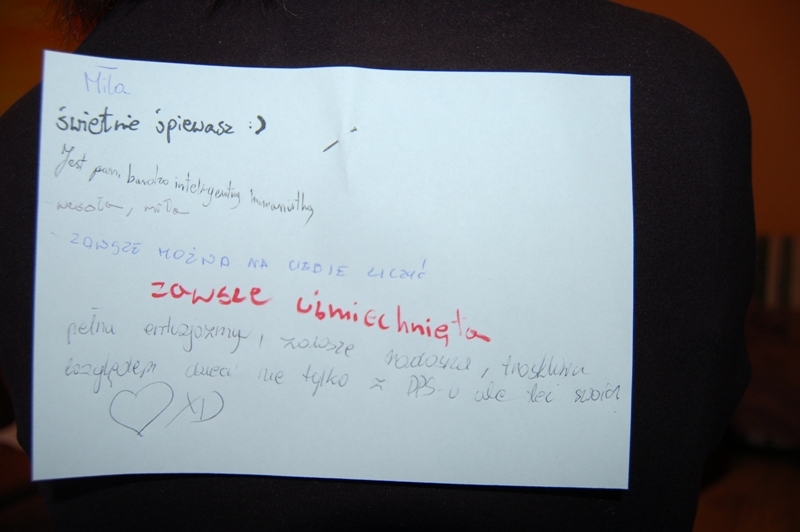 Miła
świetnie śpiewasz :)
Jest pani bardzo inteligentną humanistką
- wesoła, miła
- ZAWSZE MOŻNA NA CIEBIE LICZYĆ
zawsze uśmiechnięta
pełna entuzjazmu, zawsze radosna, troskliwa
względem dzieci nie tylko z DPS-u ale też swoich
XD